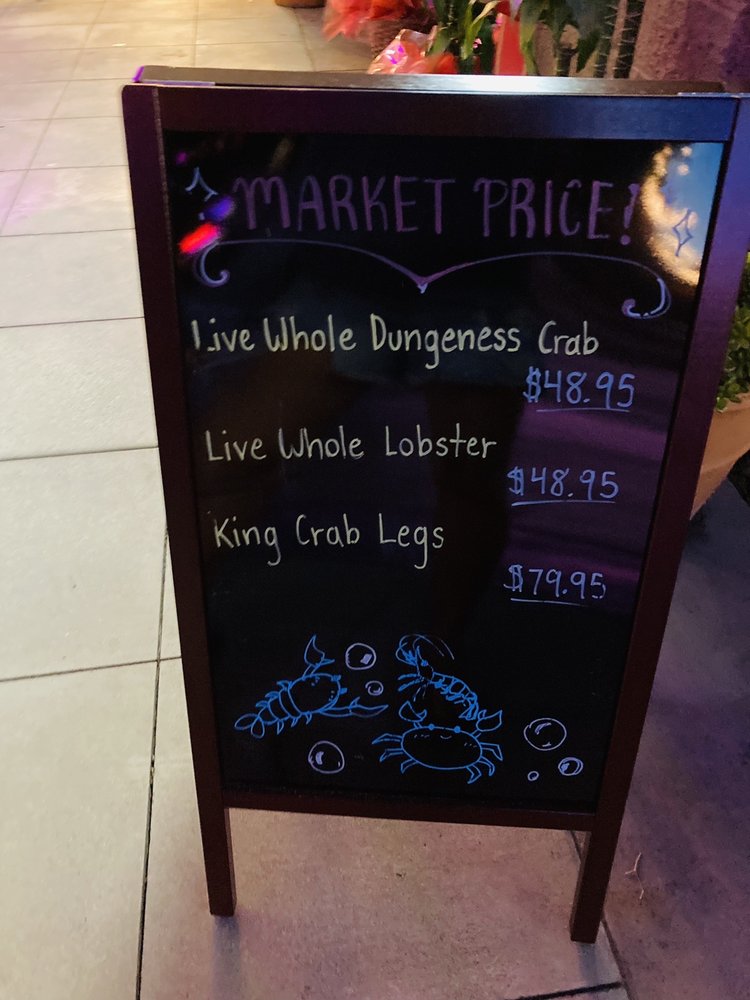 MARKET PRICE!
Live Whole Dungeness Crab
$48.95
Live Whole Lobster
$48.95
King Crab Legs
$79.95